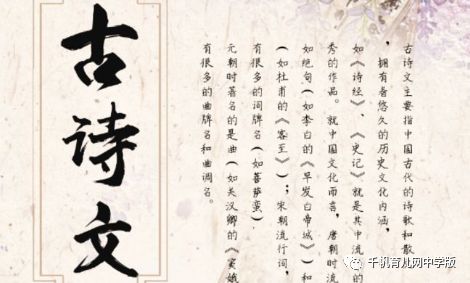 古诗文
古诗文主要指中国古代的诗歌和散
，拥有着悠久的历史文化内涵，
如《诗经》、《史记》就是其中流的
秀的作品。就中国文化而言，唐朝时流
如绝句（如李白的《早发白帝城》）和
（如杜甫的《客至》）；宋朝流行词，
有很多的词牌名（如菩萨蛮）
元朝时著名的是曲（如关汉卿的《窦娥
有很多的曲牌名和曲调名。
育儿网中学版